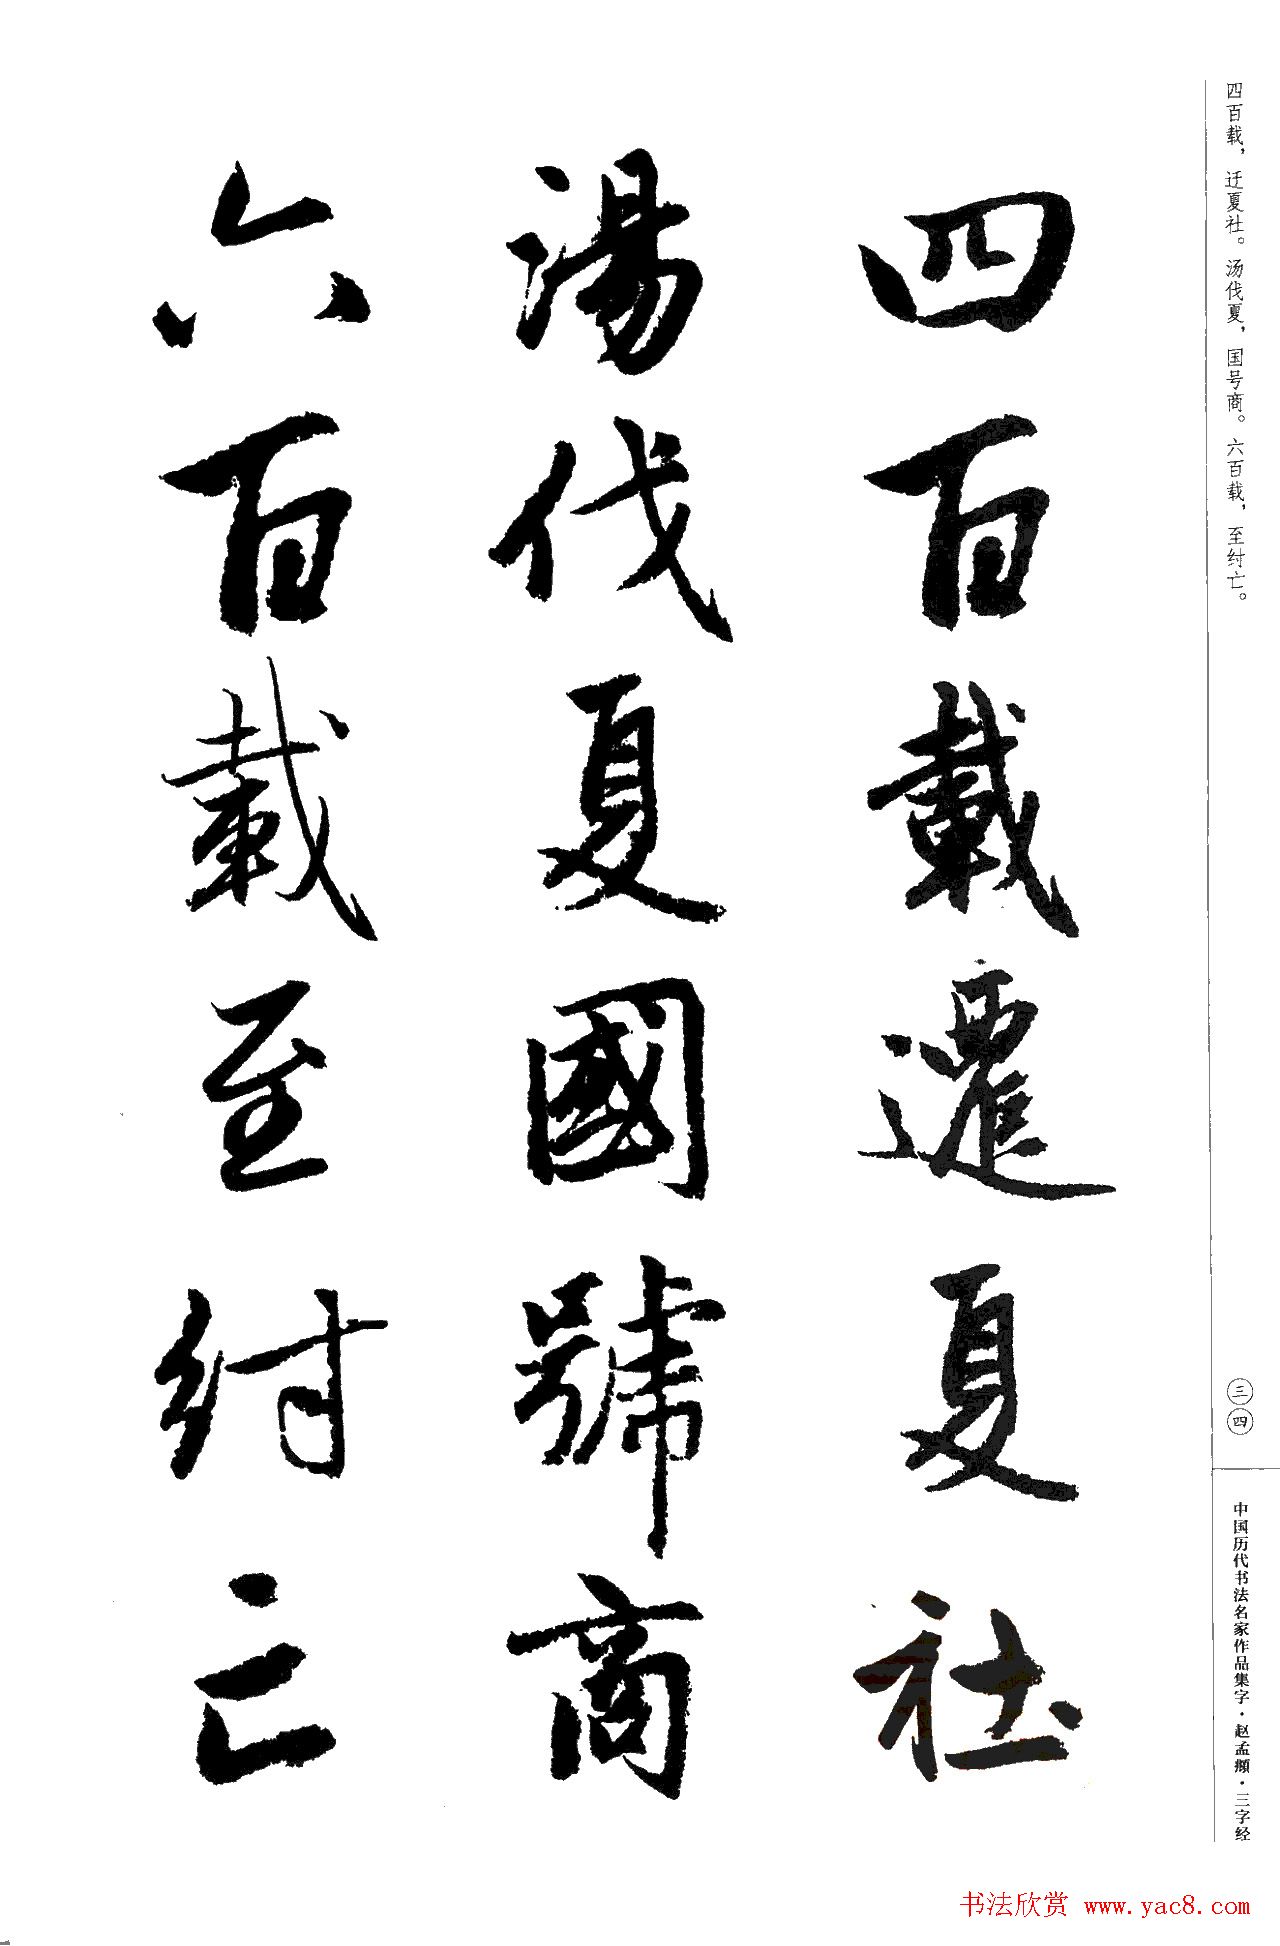 四百载，迁夏社。汤伐夏，国号商。六百载，至纣亡。
四百載遷夏社
湯伐夏國號商
六百載至紂亡
三四
中国历代书法名家作品集字·赵孟頫·三字经
书法欣赏 www.yac8.com